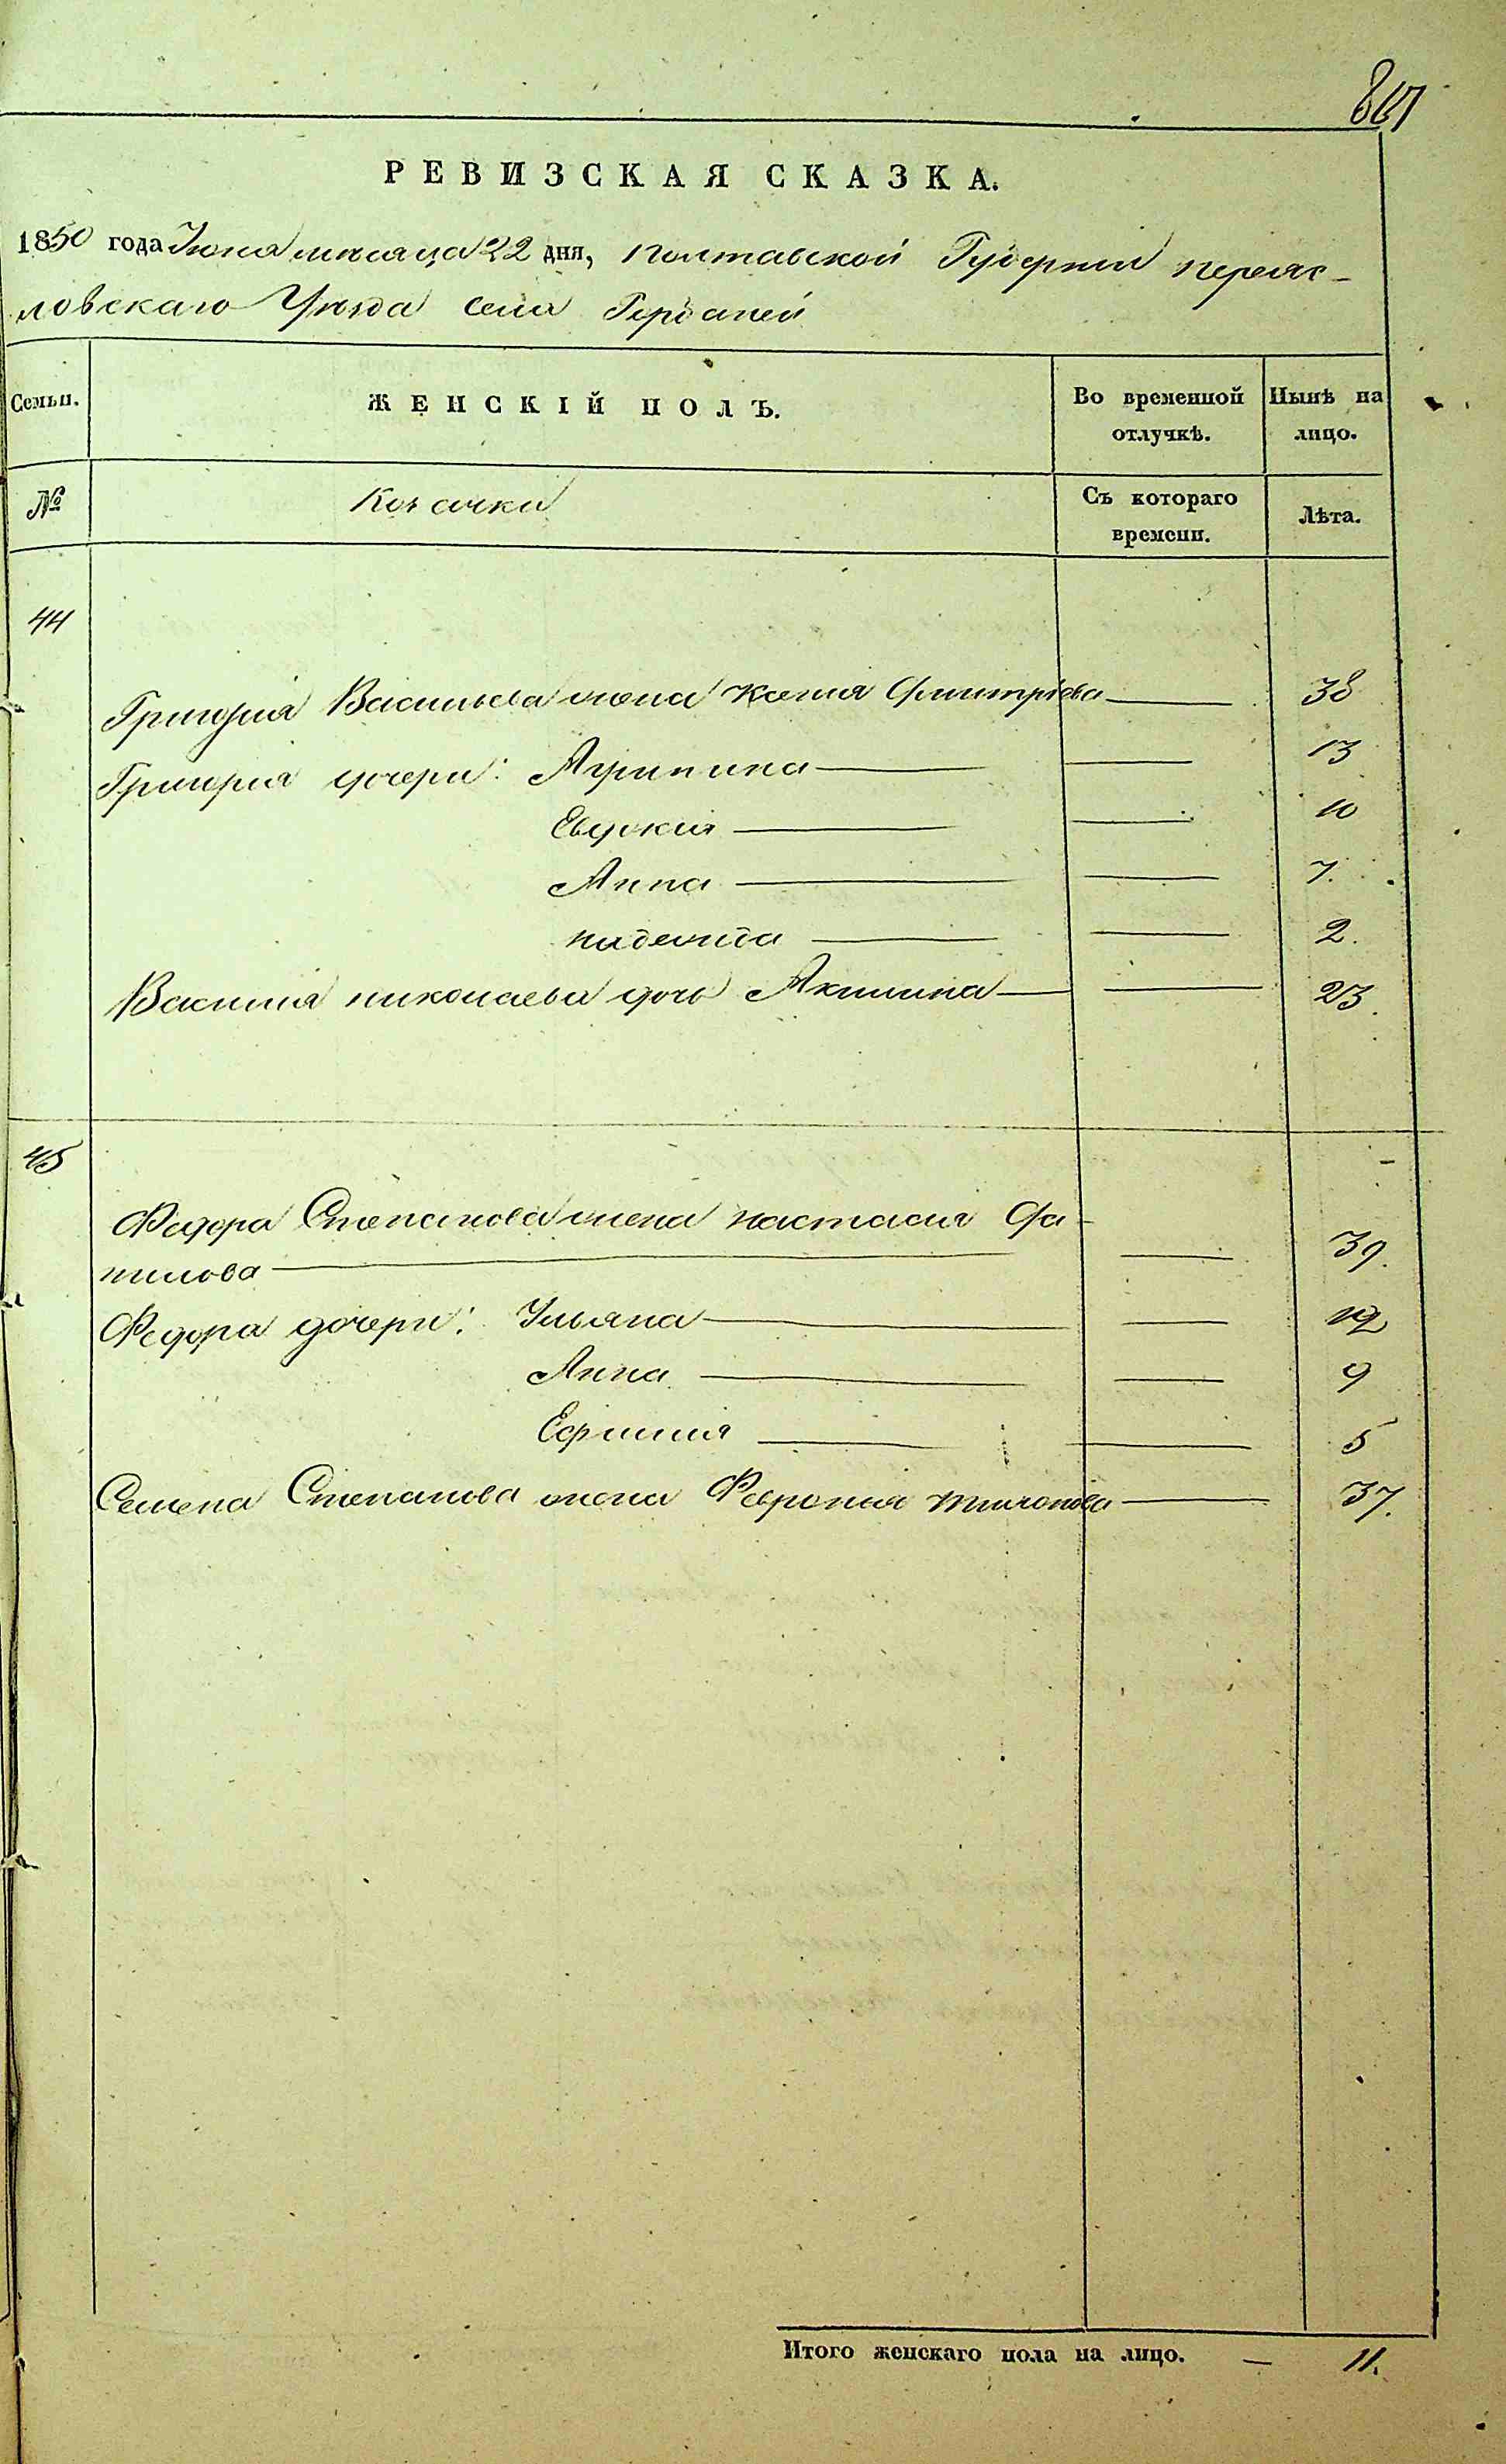 867
РЕВИЗСКАЯ СКАЗКА.
1850 года Іюня месяца 22 дня, полтавской Губерніи переяс-
ловскаго Уезда села
Семьи. ЖЕНСКІЙ ПОЛЪ. Во временной отлучкѣ. Нынѣ на лицо.
№ Козачки Съ котораго времени. Лѣта.
44
Григорія Васильева жена Ксенія Дмитріева 38
Григорія дочери: Агрипина 13
Евдокія 10
Анна 7.
надежда 2.
Василія николаева дочь Акилина 23.
45
Федора Степанова жена настасія Да-
нилова 39.
Федора дочери: Ульяна 12
Анна 9
Ефимія 5
Семена Степанова жена Февронія тимонова 37.
Итого женскаго пола на лицо. — 11.